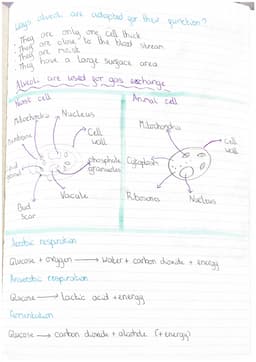 Ways alveoli are adapted for their function?
· They are only one cell thick
· They are close to the blood stream
· They are moist
· They have a large surface area
Alveoli are used for gas exchange
Yeast cell
Mitochondria
Nucleus
Membrane
Cell wall
phosphate granules
Vacuole
Bud scar
Animal cell
Mitochondria
Cell wall
Cytoplasm
Ribosomes
Nucleus
Aerobic respiration
Glucose + oxygen → water + carbon dioxide + energy
Anaerobic respiration
Glucose → lactic acid + energy
Fermentation
Glucose → carbon dioxide + alcohol (+ energy)